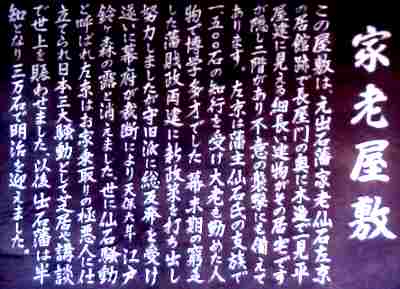 家老屋敷
この屋敷は、元出石藩家老仙石左京
の居館跡で長屋門の奥に木造で見平
屋建に見える細長い建物がその居宅です
が隠し二階があり不意の襲撃にも備えて
あります。左京は藩主仙石氏の支族で
一五〇〇石の知行を受け大老も勤めた人
物で博学多才でした 幕末期の窮乏
した藩財政再建に新政策を打ち出し
努力しましたが守旧派に総反発を受け
遂に幕府が裁断により天保六年 江戸
鈴ヶ森の露と消えました。世に仙石騒動
と呼ばれ左京はお家乗取りの極悪人に仕
立てられ日本三大騒動として芝居や講談
で世上を賑わせました。以後出石藩は半
知となり三万石で明治を迎えました。